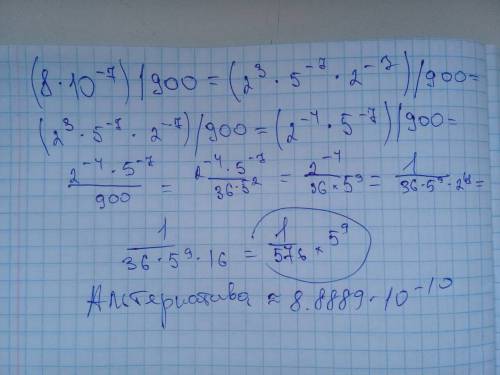 (8 · 10⁻⁷) | 900 = (2³ · 5⁻⁷ · 2⁻⁷) | 900 =
(2³ · 5⁻⁷ · 2⁻⁷) | 900 = (2⁻⁴ · 5⁻⁷) | 900 =
2⁻⁴ · 5⁻⁷ / 900 = 2⁻⁴ · 5⁻⁷ / 36 · 5² = 2⁻⁴ / 36 × 5⁹ = 1 / 36 · 5⁹ · 2⁴ =
1 / 36 · 5⁹ · 16 = 1 / 576 × 5⁹
Альтернатива ≈ 8.8889 · 10⁻¹⁰